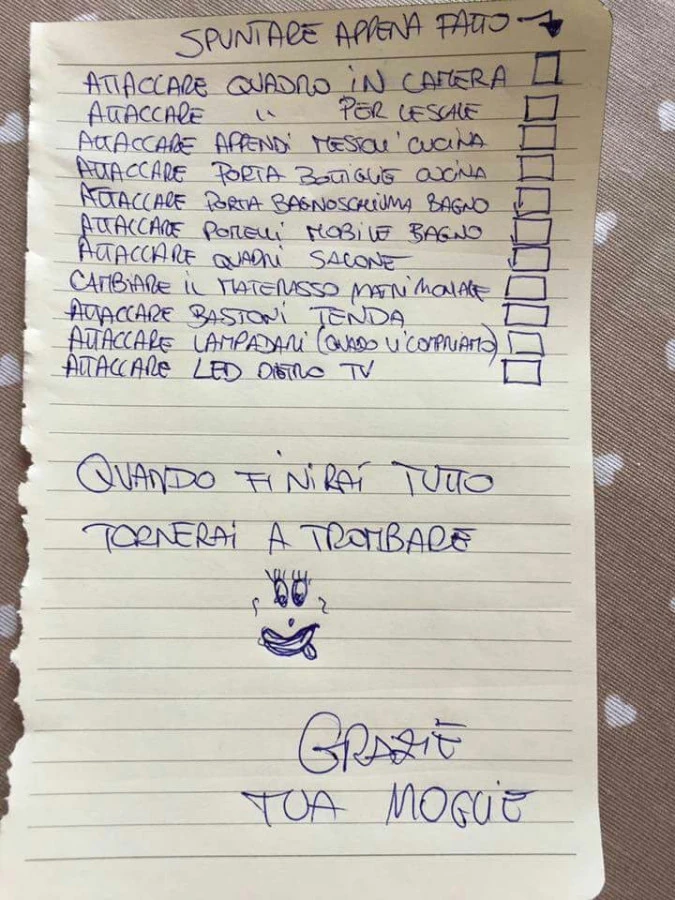 SPUNTARE APPENA FATTO
ATTACCARE QUADRO IN CAMERA
ATTACCARE " PER LE SCALE
ATTACCARE APPENDI MESTOLI CUCINA
ATTACCARE PORTA BOTTIGLIE CUCINA
ATTACCARE PORTA BAGNOSCHIUMA BAGNO
ATTACCARE POMELLI MOBILE BAGNO
ATTACCARE QUADRI SALONE
CAMBIARE IL MATERASSO MATRIMONIALE
ATTACCARE BASTONI TENDA
ATTACCARE LAMPADARI (QUANDO LI COMPRIAMO)
ATTACCARE LED DIETRO TV
QUANDO FINIRAI TUTTO
TORNERAI A TROMBARE
GRAZIE
TUA MOGLIE